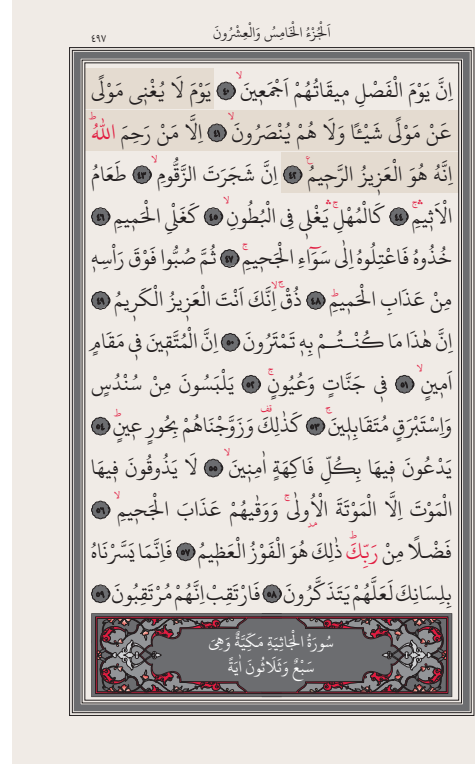 اَلْجُزْءُ الْخَامِسُ وَالْعِشْرُونَ
٤٩٧
اِنَّ يَوْمَ الْفَصْلِ م۪يقَاتُهُمْ اَجْمَع۪ينَۙ ﴿٤٠﴾ يَوْمَ لَا يُغْن۪ي مَوْلًى
عَنْ مَوْلًى شَيْـًٔا وَلَا هُمْ يُنْصَرُونَۙ ﴿٤١﴾ اِلَّا مَنْ رَحِمَ اللّٰهُۜ
اِنَّهُ هُوَ الْعَز۪يزُ الرَّح۪يمُ۟ ﴿٤٢﴾ اِنَّ شَجَرَتَ الزَّقُّومِۙ ﴿٤٣﴾ طَعَامُ
الْاَث۪يمِۚۛ ﴿٤٤﴾ كَالْمُهْلِۚۛ يَغْل۪ي فِي الْبُطُونِۙ ﴿٤٥﴾ كَغَلْيِ الْحَم۪يمِ ﴿٤٦﴾
خُذُوهُ فَاعْتِلُوهُ اِلٰى سَوَٓاءِ الْجَح۪يمِۚ ﴿٤٧﴾ ثُمَّ صُبُّوا فَوْقَ رَأْسِه۪
مِنْ عَذَابِ الْحَم۪يمِۜ ﴿٤٨﴾ ذُقْۙۚ اِنَّكَ اَنْتَ الْعَز۪يزُ الْكَر۪يمُ ﴿٤٩﴾
اِنَّ هٰذَا مَا كُنْتُمْ بِه۪ تَمْتَرُونَ ﴿٥٠﴾ اِنَّ الْمُتَّق۪ينَ ف۪ي مَقَامٍ
اَم۪ينٍۙ ﴿٥١﴾ ف۪ي جَنَّاتٍ وَعُيُونٍۚ ﴿٥٢﴾ يَلْبَسُونَ مِنْ سُنْدُسٍ
وَاِسْتَبْرَقٍ مُتَقَابِل۪ينَۚ ﴿٥٣﴾ كَذٰلِكَ۠ وَزَوَّجْنَاهُمْ بِحُورٍ ع۪ينٍۜ ﴿٥٤﴾
يَدْعُونَ ف۪يهَا بِكُلِّ فَاكِهَةٍ اٰمِن۪ينَۙ ﴿٥٥﴾ لَا يَذُوقُونَ ف۪يهَا
الْمَوْتَ اِلَّا الْمَوْتَةَ الْاُو۫لٰىۚ وَوَقٰيهُمْ عَذَابَ الْجَح۪يمِۙ ﴿٥٦﴾
فَضْلًا مِنْ رَبِّكَۜ ذٰلِكَ هُوَ الْفَوْزُ الْعَظ۪يمُ ﴿٥٧﴾ فَاِنَّمَا يَسَّرْنَاهُ
بِلِسَانِكَ لَعَلَّهُمْ يَتَذَكَّرُونَ ﴿٥٨﴾ فَارْتَقِبْ اِنَّهُمْ مُرْتَقِبُونَ ﴿٥٩﴾
سُورَةُ الْجَاثِيَةِ مَكِّيَّةٌ وَهِيَ
سَبْعٌ وَثَلَاثُونَ اٰيَةً